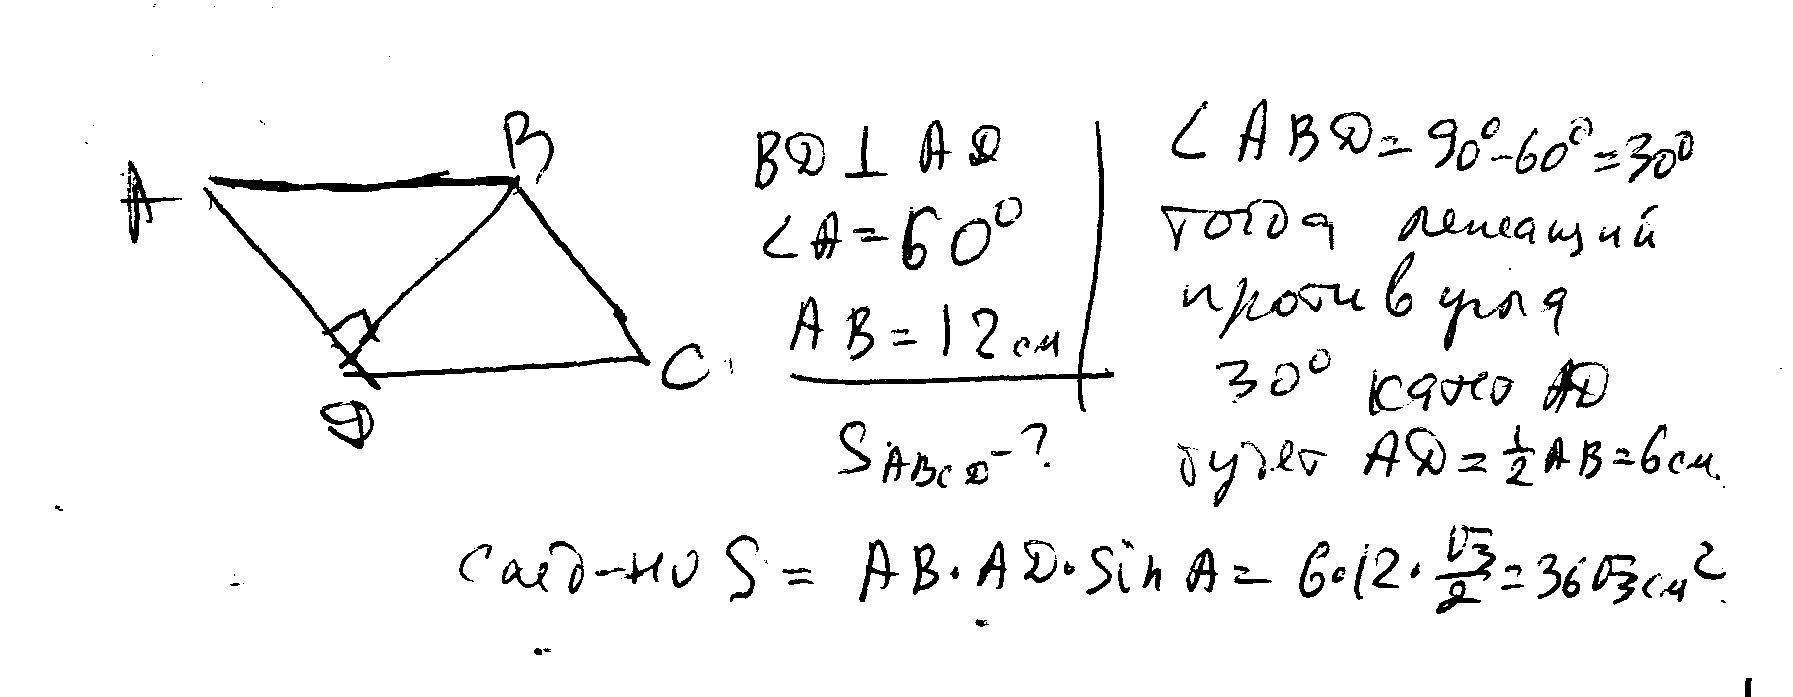 A
B
C
D
BD ⊥ AD
∠A = 60°
AB = 12 см
S ABCD - ?
∠ ABD = 90° - 60° = 30°
тогда лежащий
против угла
30° катет AD
будет AD = 1/2 AB = 6 см
след-но S = AB · AD · sin A = 6·12 · √3/2 = 36√3 см²